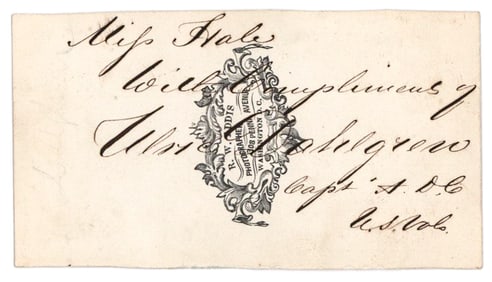 Miss Hale
With Compliments of
Ulric Dahlgren
Capt A.D.C
U.S. Vols.
R. W. ADDIS
PHOTOGRAPHER
308 PENNA. AVENUE
WASHINGTON D.C.